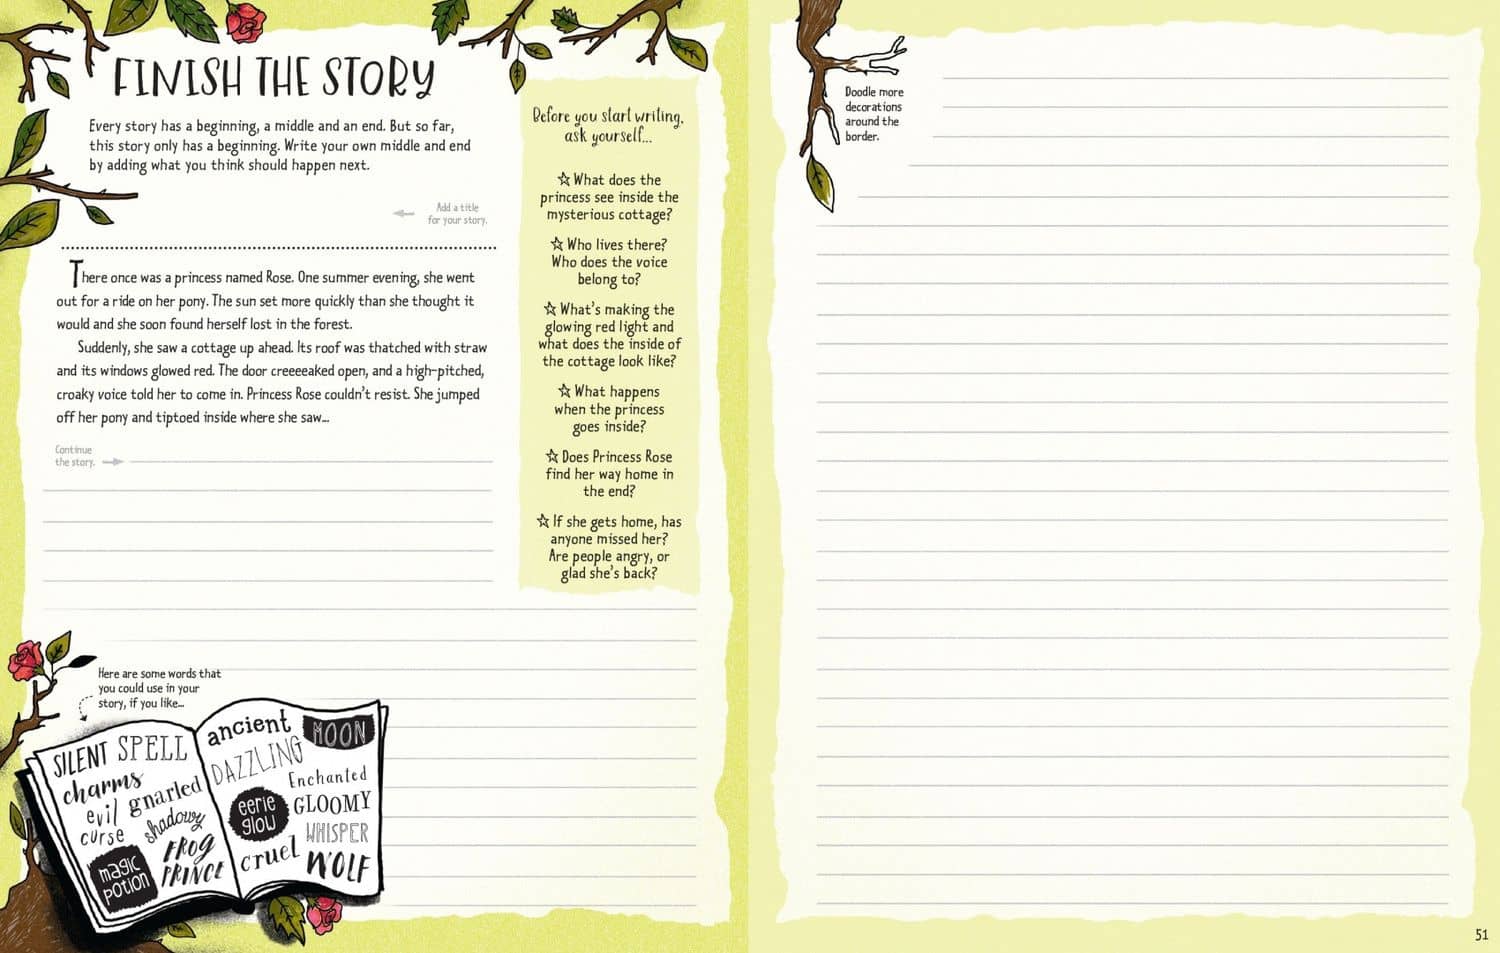 FINISH THE STORY
Every story has a beginning, a middle and an end. But so far,
this story only has a beginning. Write your own middle and end
by adding what you think should happen next.
Add a title
for your story.
There once was a princess named Rose. One summer evening, she went
out for a ride on her pony. The sun set more quickly than she thought it
would and she soon found herself lost in the forest.
Suddenly, she saw a cottage up ahead. Its roof was thatched with straw
and its windows glowed red. The door creeeeaked open, and a high-pitched,
croaky voice told her to come in. Princess Rose couldn't resist. She jumped
off her pony and tiptoed inside where she saw...
Continue
the story.
Before you start writing,
ask yourself...
☆ What does the
princess see inside the
mysterious cottage?
☆ Who lives there?
Who does the voice
belong to?
☆ What's making the
glowing red light and
what does the inside of
the cottage look like?
☆ What happens
when the princess
goes inside?
☆ Does Princess Rose
find her way home in
the end?
☆ If she gets home, has
anyone missed her?
Are people angry, or
glad she's back?
Here are some words that
you could use in your
story, if you like...
SILENT SPELL
charms
evil gnarled
curse shadowy
magic
potion
FROG
PRINCE
ancient MOON
DAZZLING
Enchanted
eerie
glow
GLOOMY
WHISPER
cruel WOLF
Doodle more
decorations
around the
border.
51